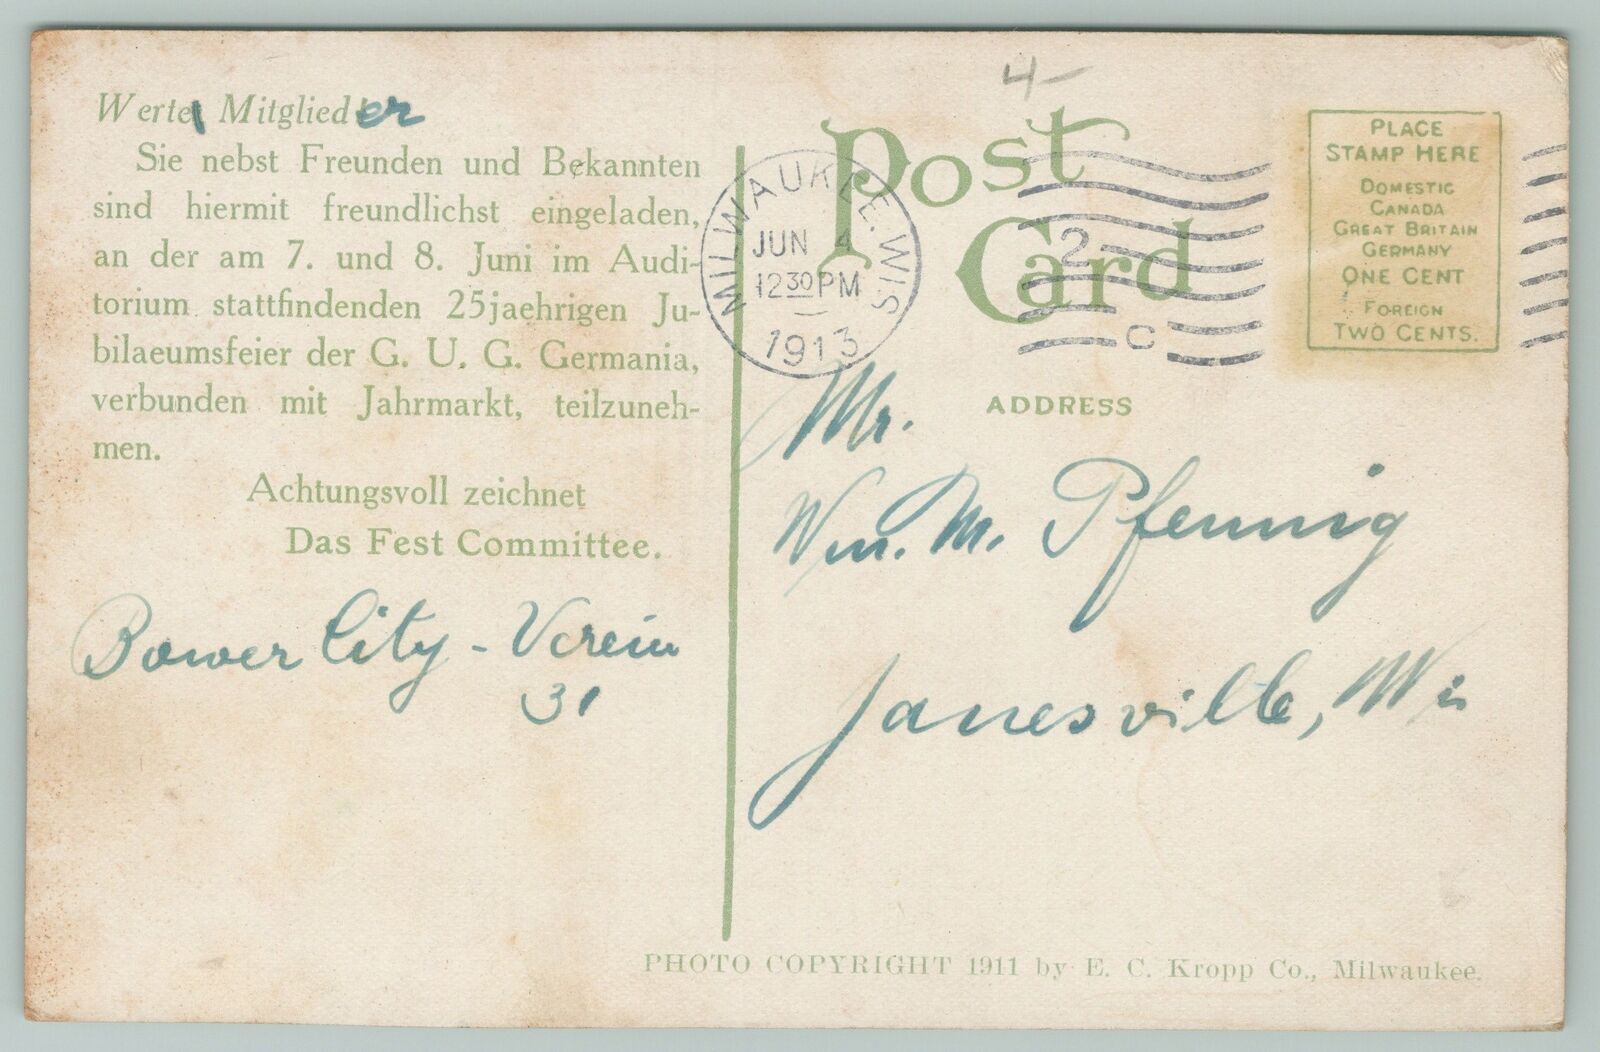 4-
Werte Mitglieder
Sie nebst Freunden und Bekannten
sind hiermit freundlichst eingeladen,
an der am 7. und 8. Juni im Audi-
torium stattfindenden 25jaehrigen Ju-
bilaeumsfeier der G. U. G. Germania,
verbunden mit Jahrmarkt, teilzuneh-
men.
Achtungsvoll zeichnet
Das Fest Committee.
Bower City - Verein
31
Post
Card
MILWAUKEE. WIS
JUN 4
12 30 PM
1913
2
C
PLACE
STAMP HERE
DOMESTIC
CANADA
GREAT BRITAIN
GERMANY
ONE CENT
FOREIGN
TWO CENTS.
ADDRESS
Mr.
Wm. M. Pfennig
Janesville, Wis
PHOTO COPYRIGHT 1911 by E. C. Kropp Co., Milwaukee.